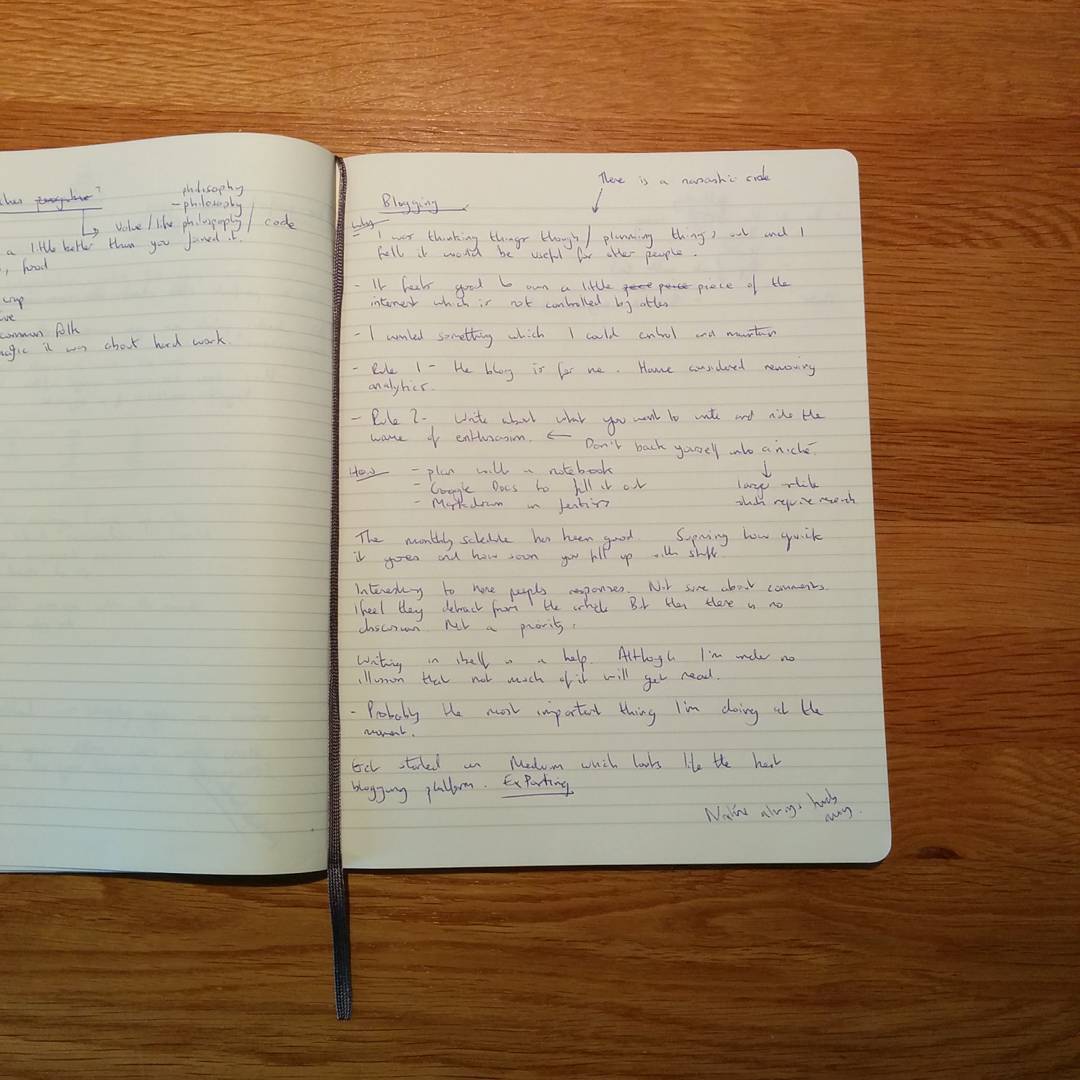 philosophy
-philosophy
value/life philosophy/code
a little better than you joined it.
, food
common folk
it was about hard work.
There is a code
Blogging
Why
- I was thinking things though/planning things out and I
felt it would be useful for other people.
- It feels good to own a little piece of the
internet which is not controlled by others
- I wanted something which I could control and maintain
- Rule 1 - the blog is for me. Have considered removing
analytics.
- Rule 2 - Write about what you want to write and ride the
wave of enthusiasm. ← Don't back yourself into a niche.
How - plan with a notebook
- Google Docs to fill it out
- Markdown in
large
which require research
The monthly schedule has been good. how quick
it goes and how soon you fill up with stuff
Interesting to have peoples responses. Not sure about comments.
I feel they detract from the article But then there is no
discussion. Not a priority.
Writing in itself is a help. Although I'm under no
illusion that not much of it will get read.
- Probably the most important thing I'm doing at the
moment.
Get started on Medium which looks like the best
blogging platform.
always